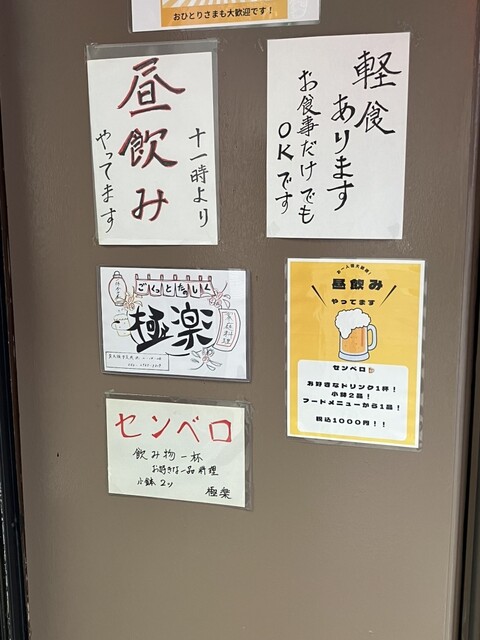 おひとりさまも大歓迎です！
昼飲み
十一時より
やってます
軽食
あります
お食事だけでも
OKです
ごくっとたのしく
極楽
家庭料理
お一人様大歓迎！
昼飲み
やってます
センベロ
お好きなドリンク1杯！
小鉢2品！
フードメニューから1品！
税込1000円！！
センベロ
飲み物一杯
お好きな一品料理
小鉢2ツ
極楽